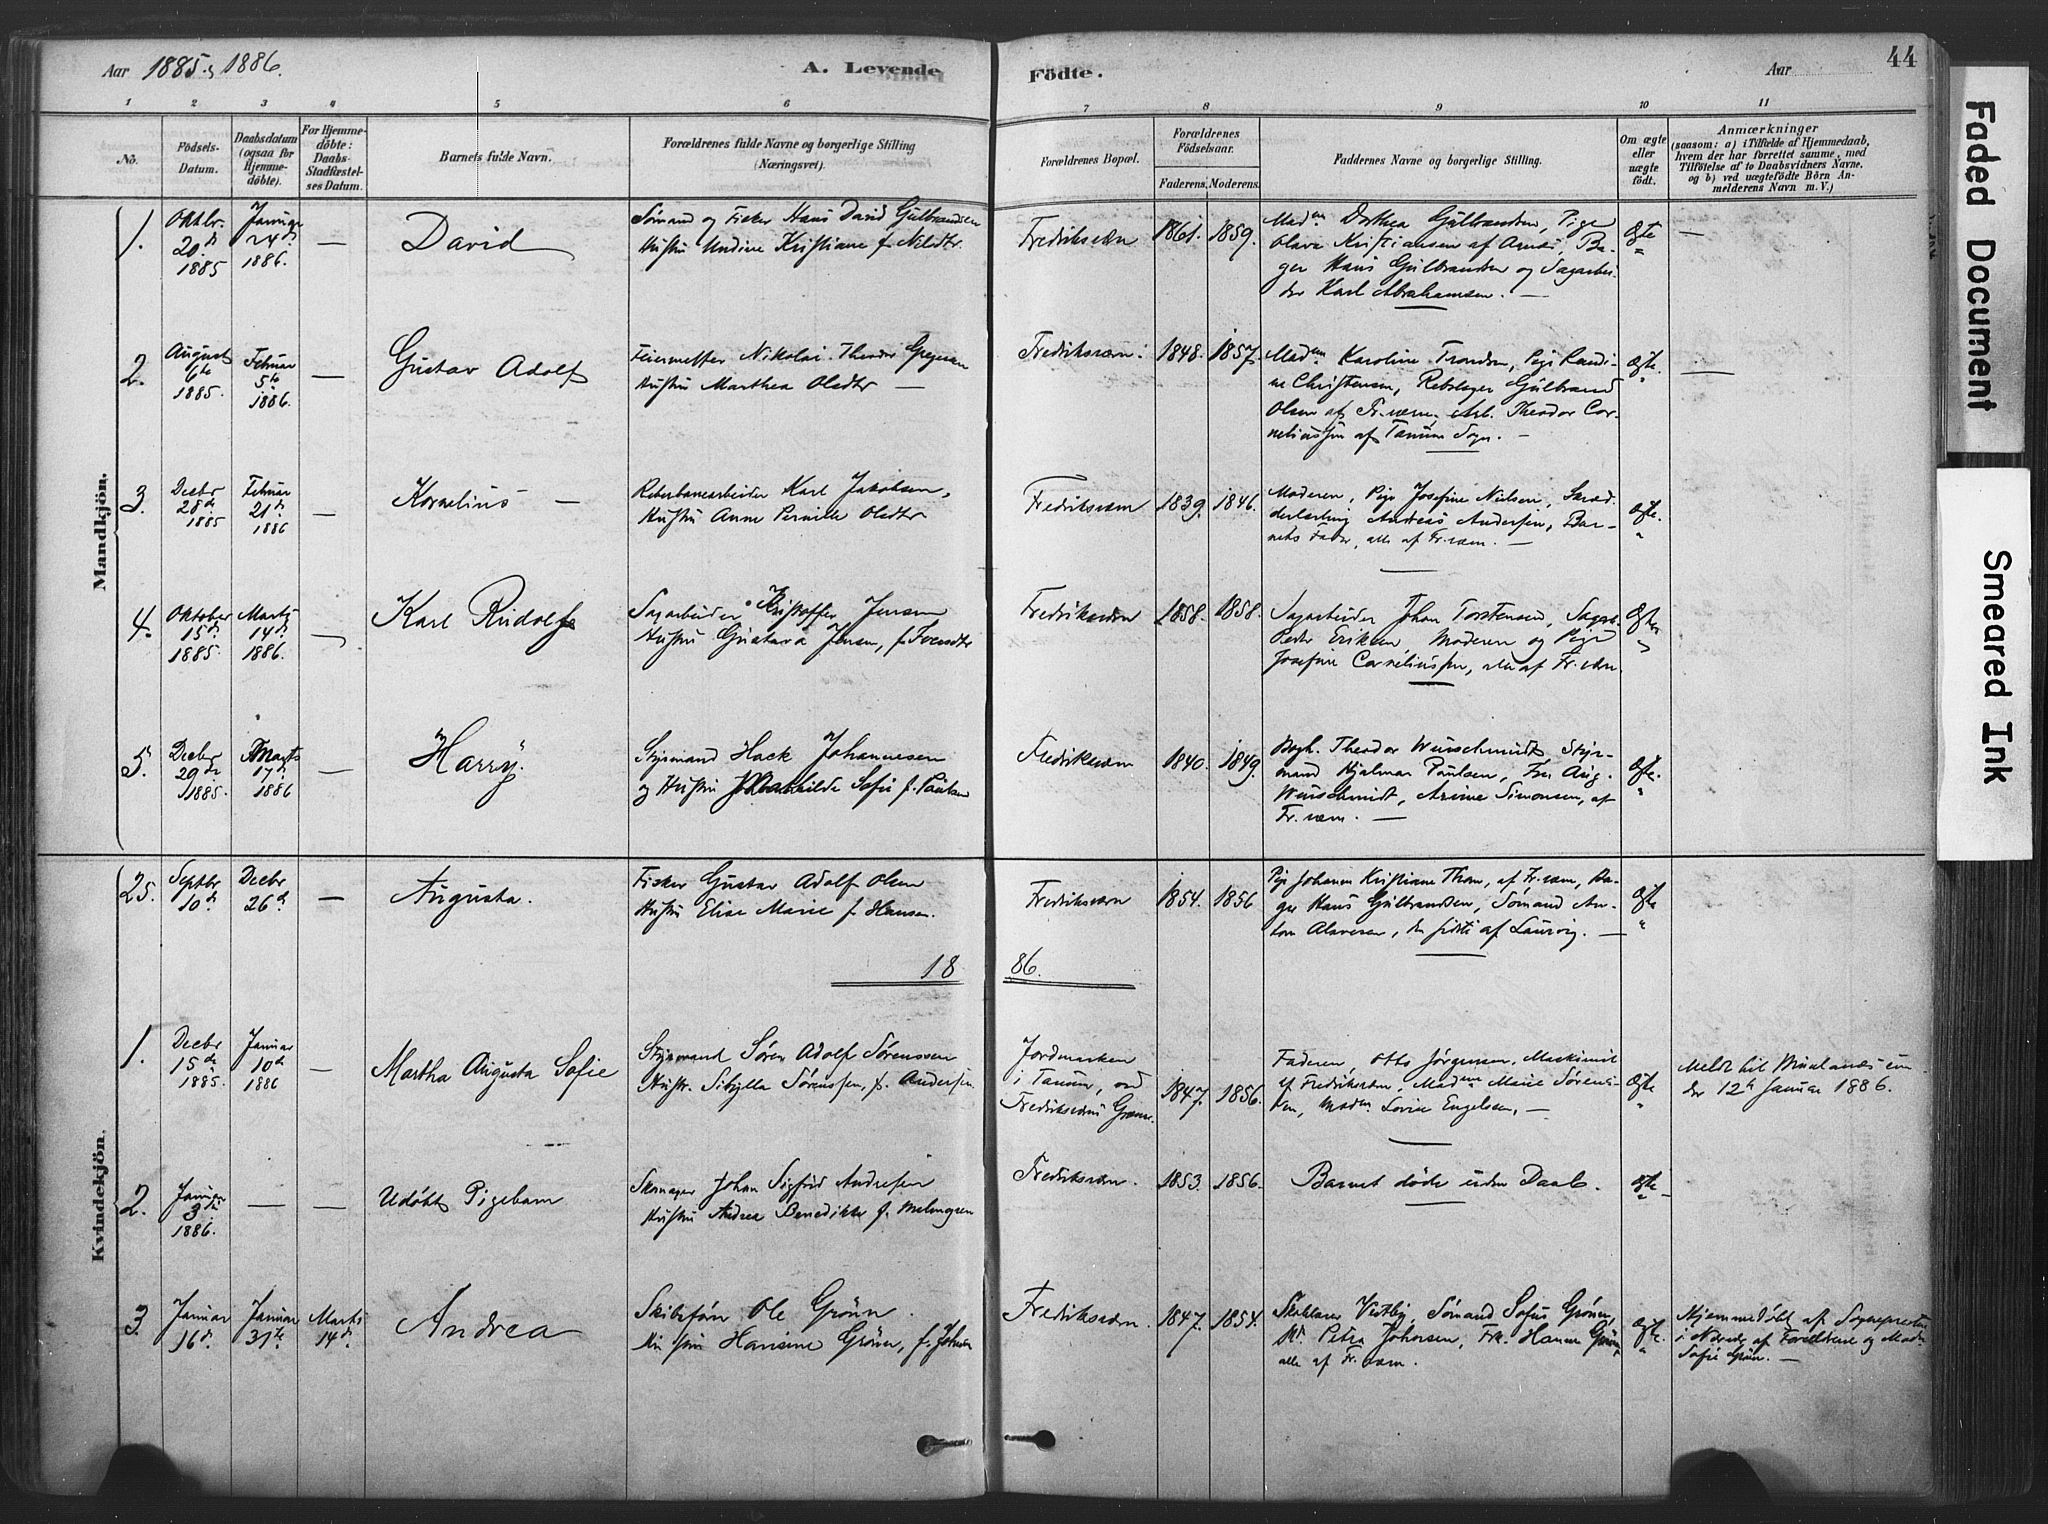 Aar 1885 & 1886.
A. Levende
Födte.
Aar
44
1 2 3 4 5 6 7 8 9 10 11
No.
Födsels-
Datum.
Daabsdatum
(ogsaa for
Hjemme-
døbte).
For Hjemme-
döbte:
Daabs-
Stadfæstel-
ses Datum.
Barnets fulde Navn.
Forældrenes fulde Navne og borgerlige Stilling
(Næringsvei).
Forældrenes Bopæl.
Forældrenes
Födselsaar.
Faderens. Moderens.
Faddernes Navne og borgerlige Stilling.
Om ægte
eller
uægte
födt.
Anmærkninger
(saasom: a) i Tilfælde af Hjemmedaab,
hvem der har forrettet samme, med
Tilföielse af to Daabsvidners Navne.
og b) ved uægtefödte Börn An-
melderens Navn m. V.)
Mandkjön.
1.
Oktbr.
20de
1885
Januar
24de
1886.
—
David
Sömand og Fisker Hans David Gulbrandsen
Hustru Undine Kristiane f. Nilsdtr.
Fredriksværn
1861. 1859.
Madm Dorthea Gulbrandsen, Pige
Olava Kristiansen af Agnes, Ba-
ger Hans Gulbrandsen og Sagarbei-
der Karl Abrahamsen. —
Ægte
—
2.
August
6te
1885.
Februar
5te
1886.
—
Gustav Adolf
Feiermester Nikolai Theodor Gregersen
Hustru Marthea Olsdtr —
Fredriksværn.
1848. 1857.
Madm Karoline Trondsen, Pige Randi-
ne Christensen, Rebslager Gulbrand
Olsen af Fr.værn. Arb. Theodor Cor-
neliussen af Tanum Sogn. —
Ægte.
—
3.
Decbr
28de
1885
Februar
21de
1886
—
Kornelius —
Reberbanearbeider Karl Jakobsen,
Hustru Anne Pernille Olsdtr
Fredriksværn
1839. 1846.
Moderen, Pige Josefine Nielsen, Skræd-
derlærling Andreas Andersen, Bar-
nets Fader, alle af Fr.værn. —
Ægte.
4.
Oktober
15de
1885
Marts
14de
1886.
—
Karl Rudolf
Sagarbeider Kristoffer Jensen
Hustru Gustava Jensen, f. Svendsdtr
Fredriksværn
1858. 1858.
Sagarbeider Johan Torstensen, Sagarb.
Peder Eriksen Moderen og Pige
Josefine Corneliussen, alle af Fr.værn.
Ægte
5.
Decbr
29de
1885.
Marts
17de
1886
—
Harry.
Styrmand Hack Johannesen
og Hustru Mathilde Sofie f. Paulsen
Fredriksværn
1840. 1849.
Bogh. Theodor Wurschmidt, Styr-
mand Hjalmar Paulsen, Fru Aug.
Wurschmidt, Simonsen, af
Fr.værn. —
Ægte.
25.
Septbr
10de
Decbr
26de
—
Augusta.
Fisker Gustav Adolf Olsen
Hustru Elise Marie f. Hansen.
Fredriksværn
1854. 1856
Pige Johanne Kristiane Thom, af Fr.værn, Ba-
ger Hans Gulbrandsen, Sömand An-
ton Olavesen, de sidste af Laurvig. —
Ægte
18 86.
Kvindekjön.
1.
Decbr
15de
1885.
Januar
10de
1886
—
Martha Augusta Sofie
Styrmand Sören Adolf Sørenssen
Hustr. Sibylla Sørenssen, f. Andersen
Jordmarken
i Tanum, ved
Fredriksværns Grænse.
1847. 1856.
Faderen, Otto Jörgensen, Maskinist
af Fredriksværn, Madm Marie Sørens-
sen, Madm. Lovise Engelsen. —
Ægte
Meldt til un-
der 12te Januar 1886.
2.
Januar
3die
1886.
— —
Udøbt Pigebarn
Skomager Johan Sigfrid Andresen
Hustru Andrea Benedikte f. Malmgren
Fredriksværn.
1853. 1856.
Barnet døde uden Daab.
Ægte —
3.
Januar
16de
Januar
31te
Marts
14de
Andrea
Skibsfører Ole Grönn.
Hustru Hansine Grönn, f. Johnsen
Fredriksværn.
1847. 1854.
Vestby, Sömand Sofus Grönn,
Petra Johnsen, Frk. Hanna Grönn,
alle af Fr.værn.
Ægte.
Hjemmedøbt af Sognepresten
i Nærvær af Forældrene og Madm
Sofie Grön. —
Faded Document
Smeared Ink